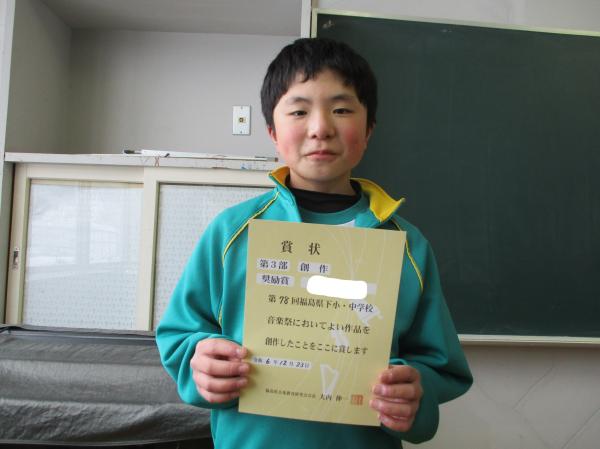 賞状
第3部 創作
奨励賞
第78回福島県下小・中学校
音楽祭においてよい作品を
創作したことをここに賞します
令和6年12月23日
大内